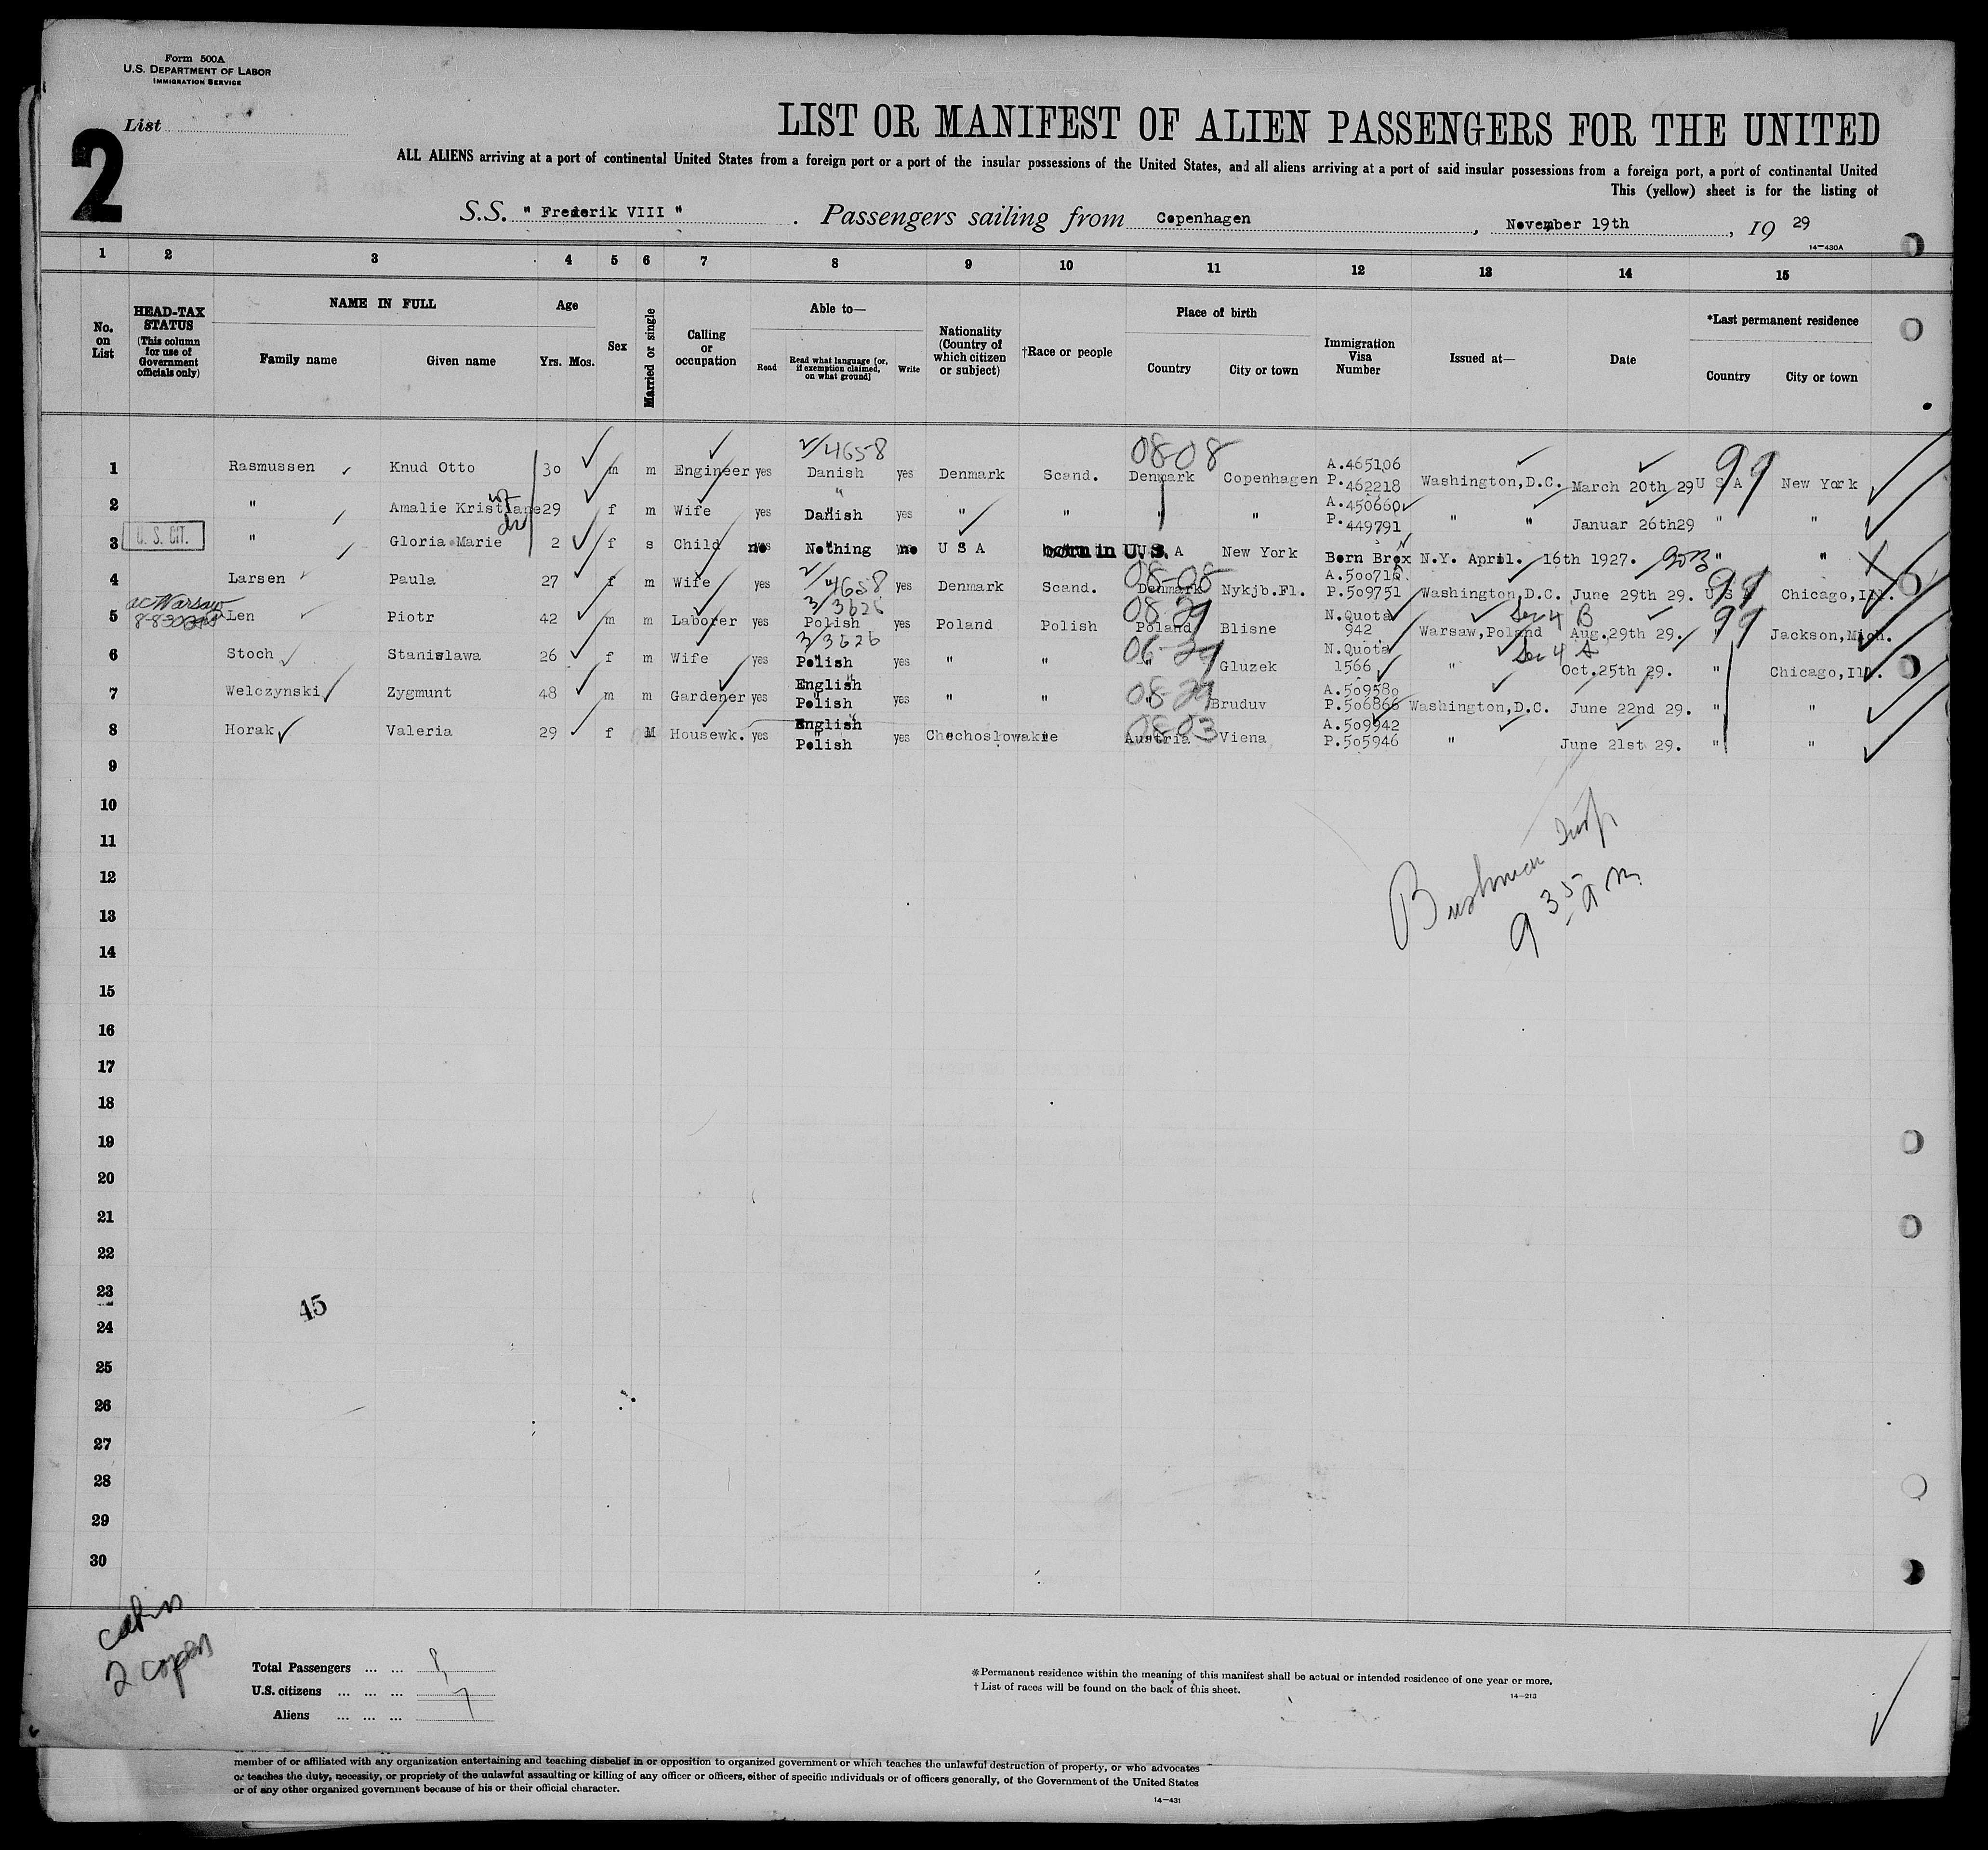 Form 500A
U.S. DEPARTMENT OF LABOR
IMMIGRATION SERVICE
List
2
LIST OR MANIFEST OF ALIEN PASSENGERS FOR THE UNITED
ALL ALIENS arriving at a port of continental United States from a foreign port or a port of the insular possessions of the United States, and all aliens arriving at a port of said insular possessions from a foreign port, a port of continental United
This (yellow) sheet is for the listing of
S.S. " Frederik VIII " . Passengers sailing from Copenhagen , November 19th , 19 29
14-430A
1 2 3 4 5 6 7 8 9 10 11 12 13 14 15
No. on List
HEAD-TAX STATUS (This column for use of Government officials only)
NAME IN FULL
Family name Given name
Age
Yrs. Mos.
Sex
Married or single
Calling or occupation
Able to—
Read
Read what language [or, if exemption claimed, on what ground]
Write
Nationality (Country of which citizen or subject)
†Race or people
Place of birth
Country City or town
Immigration Visa Number
Issued at—
Date
*Last permanent residence
Country City or town
2/4658 08-08 99
1 Rasmussen Knud Otto 30 m m Engineer yes Danish yes Denmark Scand. Denmark Copenhagen A.465106 P.462218 Washington,D.C. March 20th 29 U S A New York
2 " Amalie Kristiane 29 f m Wife yes " Danish yes " " " " A.450660 P.449791 " " Januar 26th29 " "
3 U. S. CIT. " Gloria Marie 2 f s Child no Nothing no U S A born in U.S. U S A New York Born Brox N.Y. April. 16th 1927. " "
4 Larsen Paula 27 f m Wife yes " 2/4658 yes Denmark Scand. 08-08 Denmark Nykjb.Fl. A.500716. P.509751 Washington,D.C. June 29th 29. U S A 99 Chicago,Ill.
ac Warsaw
5 Len Piotr 42 m m Laborer yes 3/3626 Polish yes Poland Polish 08-29 Poland Blisne N.Quota 942 Warsaw,Poland Sec 4 B Aug.29th 29. " 99 Jackson,Mich.
6 Stoch Stanislawa 26 f m Wife yes 3/3626 Polish yes " " 06-29 " Gluzek N.Quota 1566 " Sec 4 A Oct.25th 29. " Chicago,Ill.
7 Welczynski Zygmunt 48 m m Gardener yes English Polish yes " " 08-29 " Bruduv A.509580 P.506866 Washington,D.C. June 22nd 29. " "
8 Horak Valeria 29 f M Housewk. yes English Polish yes Chechoslowakie 0803 Austria Viena A.509942 P.505946 " June 21st 29. " "
9
10
11
12
13
14
15
16
17
18
19
20
21
22
23
24
25
26
27
28
29
30
Bushman Insp
9 35 am
45
cabin
2 copen
Total Passengers ... ... 8
U.S. citizens ... ... ... 
Aliens ... ... ... 7
*Permanent residence within the meaning of this manifest shall be actual or intended residence of one year or more.
† List of races will be found on the back of this sheet.
14-213
member of or affiliated with any organization entertaining and teaching disbelief in or opposition to organized government or which teaches the unlawful destruction of property, or who advocates
or teaches the duty, necessity, or propriety of the unlawful assaulting or killing of any officer or officers, either of specific individuals or of officers generally, of the Government of the United States
or of any other organized government because of his or their official character.
14-431